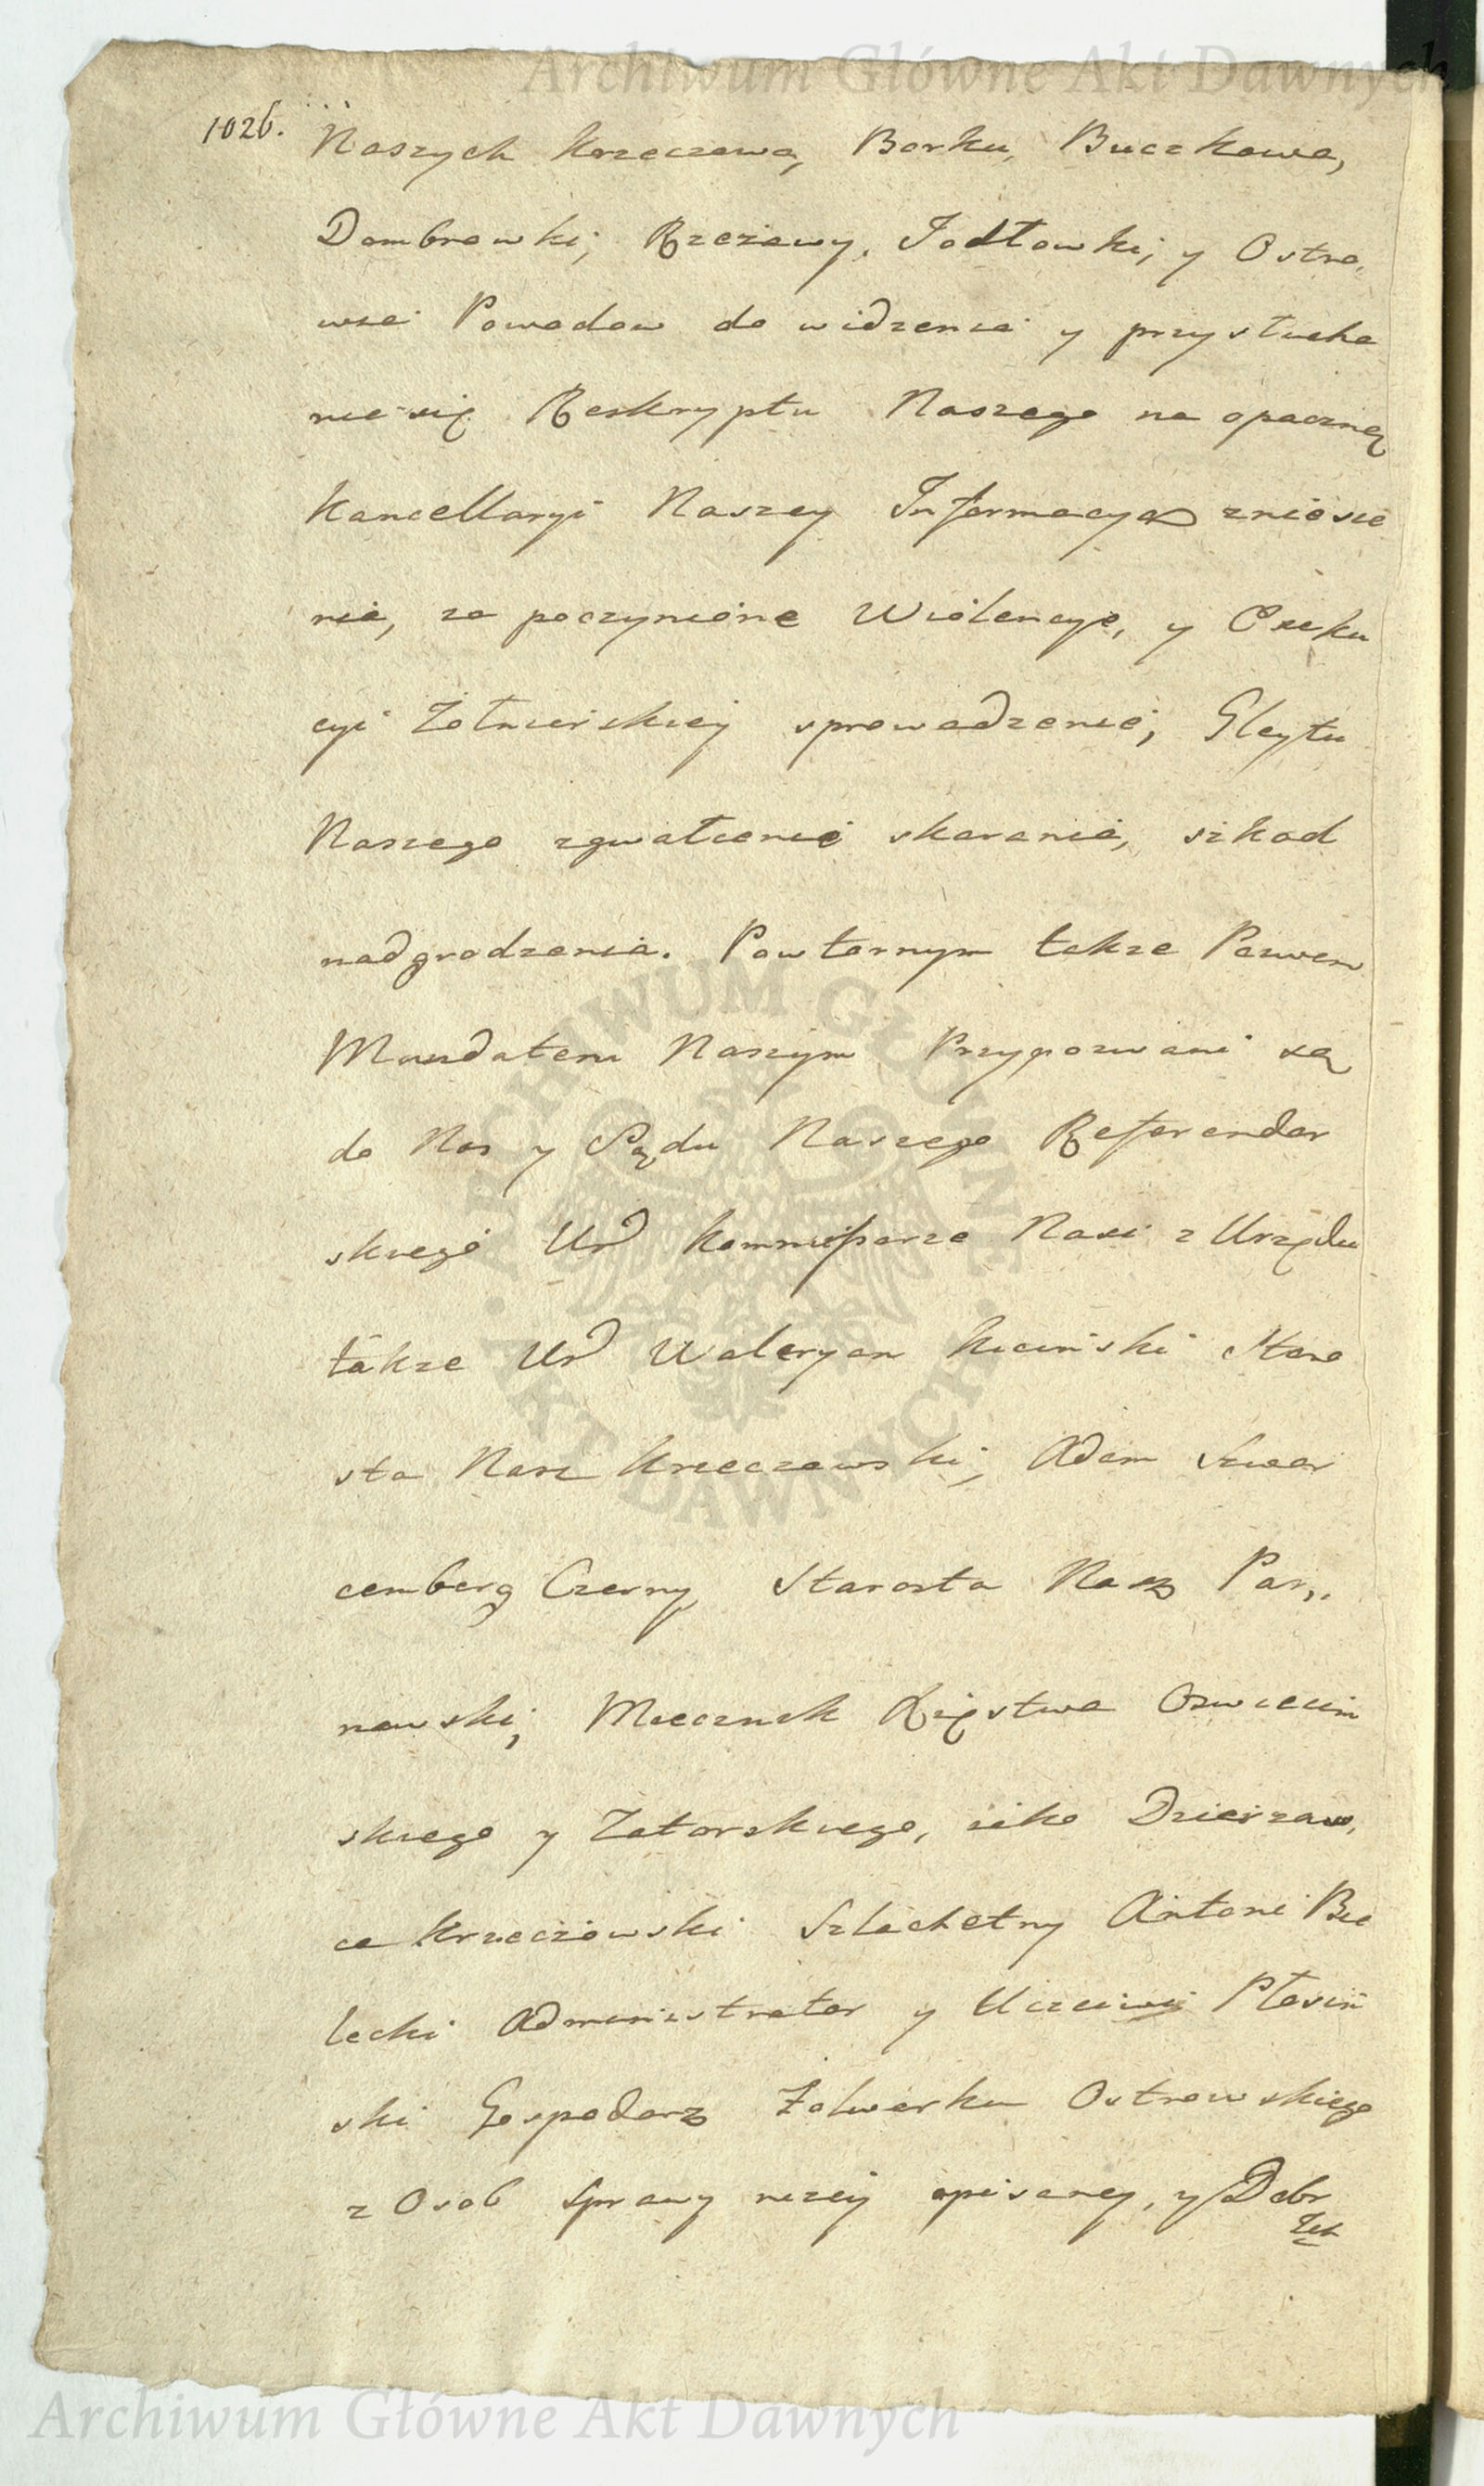 Archiwum Główne Akt Dawnych
1026.
Naszych Krzeczowa, Borku, Buczkowa,
Dombrowki, Rzezawy, Jodłowki, y Ostro,
wsa Powodow do widzenia y przysłucha
nie się Reskryptu Naszego na opaczną
Kancellaryi Naszey Informacyą zniesie
nia, za poczynione Wiolencye, y Exeku
cyi Żołnierskiey sprowadzenie, Gleytu
Naszego zgwałcenie skarania, szkod
nadgrodzenia. Powtornym także Pozwem
Mandatem Naszym Przypozwani są
do Nas y Sądu Naszego Referendar
skiego Ur Kommissarze Nasi z Urzędu
także Ur Waleryan Kiciński Staro
sta Nasz Krzeczowski, Adam Szwar
cemberg Czerny Starosta Nasz Par,,
nawski, Miecznik Xięstwa Oswiecim
skiego y Zatorskiego, iako Dzierzaw,
ca Krzeczowski Szlachetny Antoni Bie
lecki Administrator y Uczciwy Płosiń
ski Gospodarz Folwarku Ostrowskiego
z Osob Sprawy nizey opisaney, y Dobr
ARCHIWUM GŁÓWNE · AKT DAWNYCH ·
Archiwum Główne Akt Dawnych